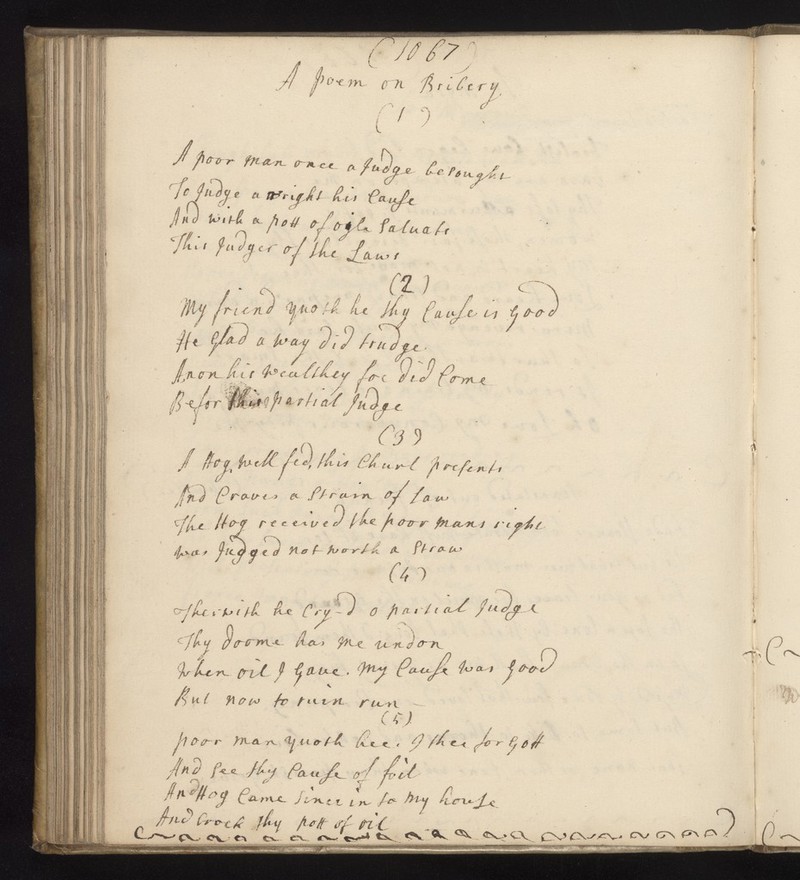 (1067)
A poem on Bribery
(1)
A poor man once a Judge besought
To Judge a wright his Cause
And with a pott of oyle Saluats
This Judger of the Laws
(2)
My friend quoth he thy Cause is good
He Glad a way did trudge.
Anon his wealthey foe did Come
Befor this partial Judge
(3)
A Hog, well fed, this Churl presents
And Craves a Strain of Law
The Hog received the poor mans right
was Judged not worth a Straw
(4)
Therwith he Cry-d o partial Judge
Thy doome has me undon
When oil I gave. My Cause was good
But now to ruin run -
(5)
poor man quoth hee. I thee forgott
And See thy Cause of foil
And Hog Came Since in to my house
And Crack thy pott of oil